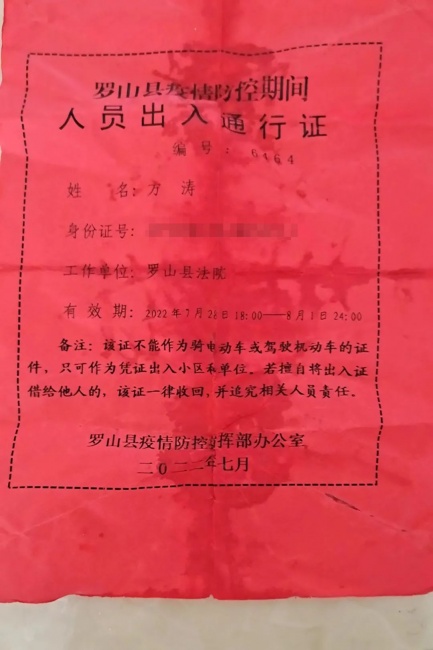 罗山县疫情防控期间
人员出入通行证
编号：6164
姓 名：方涛
身份证号：
工作单位：罗山县法院
有效期：2022年7月28日18:00——8月1日24:00
备注：该证不能作为骑电动车或驾驶机动车的证
件，只可作为凭证出入小区和单位。若擅自将出入证
借给他人的，该证一律收回，并追究相关人员责任。
罗山县疫情防控指挥部办公室
二〇二二年七月